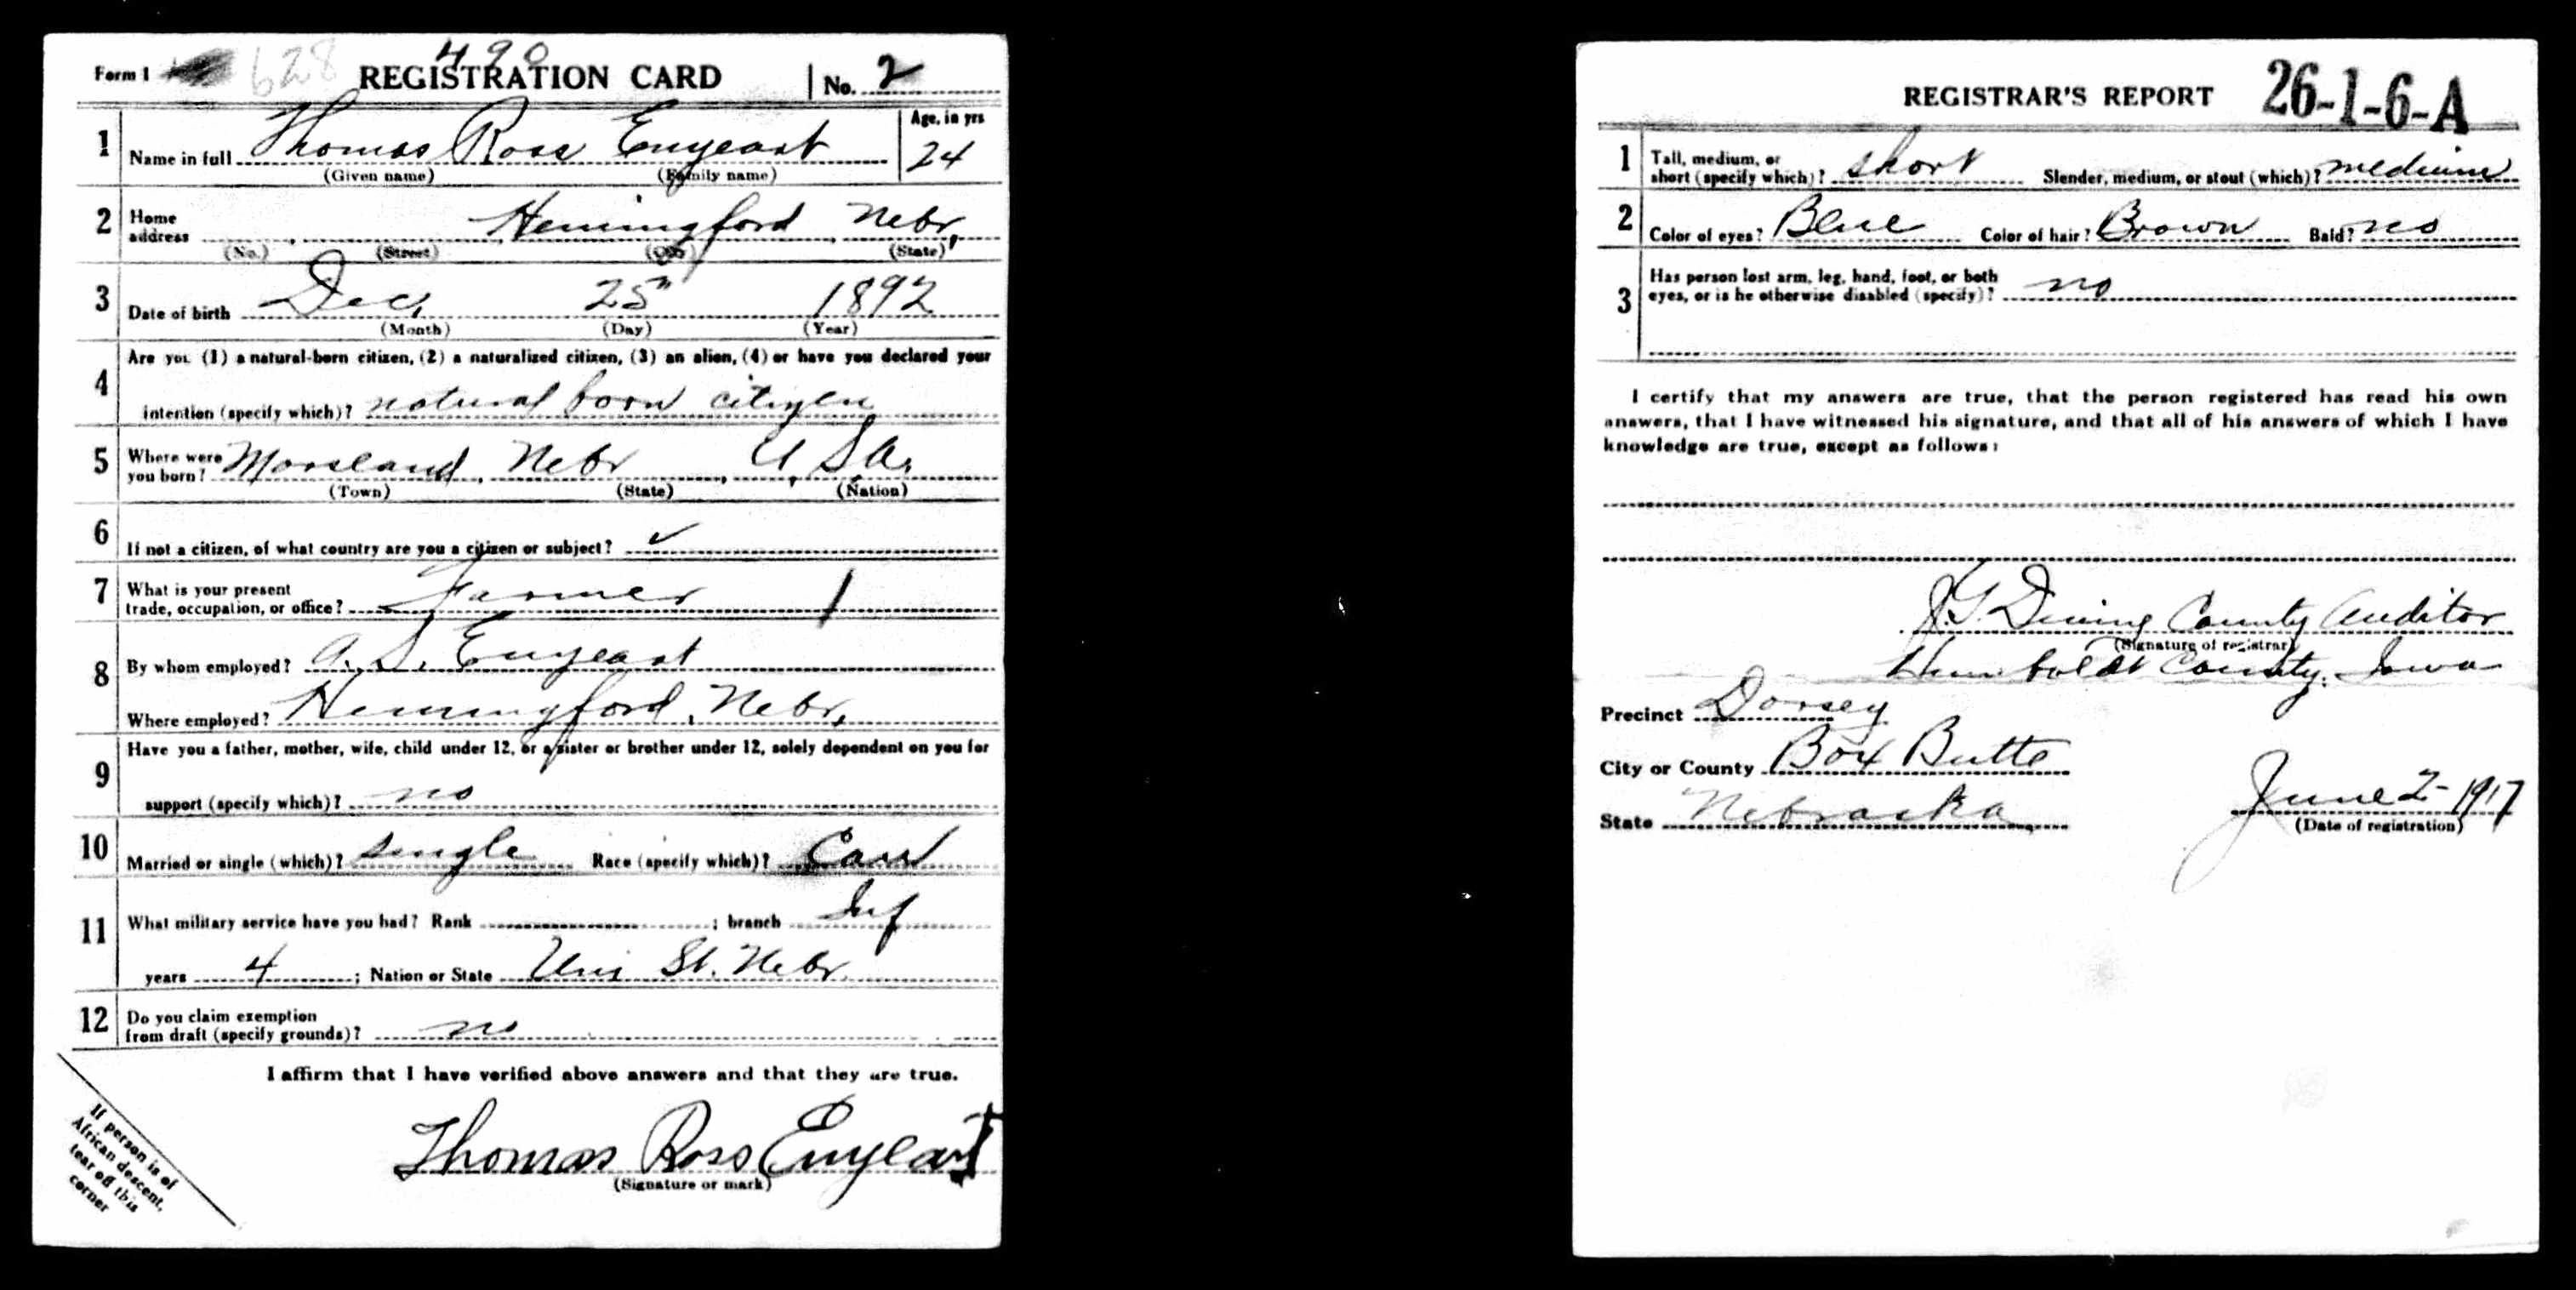 490
Form 1 628 REGISTRATION CARD No. 2
1 Name in full Thomas Ross Enyeart Age, in yrs 24
(Given name) (Family name)
2 Home address Hemingford, Nebr.
(No.) (Street) (City) (State)
3 Date of birth Dec. 25" 1892
(Month) (Day) (Year)
4 Are you (1) a natural-born citizen, (2) a naturalized citizen, (3) an alien, (4) or have you declared your
intention (specify which)? natural born citizen
5 Where were you born? Marsland, Nebr, U S A.
(Town) (State) (Nation)
6 If not a citizen, of what country are you a citizen or subject? ✓
7 What is your present trade, occupation, or office? Farmer
8 By whom employed? A. S. Enyeart
Where employed? Hemingford, Nebr.
9 Have you a father, mother, wife, child under 12, or a sister or brother under 12, solely dependent on you for
support (specify which)? no
10 Married or single (which)? single Race (specify which)? Cau
11 What military service have you had? Rank ; branch Inf
years 4 ; Nation or State Uni St. Nebr.
12 Do you claim exemption from draft (specify grounds)? no
I affirm that I have verified above answers and that they are true.
Thomas Ross Enyeart
(Signature or mark)
If person is of
African descent,
tear off this
corner
REGISTRAR'S REPORT 26-1-6-A
1 Tall, medium, or short (specify which)? short Slender, medium, or stout (which)? medium
2 Color of eyes? Blue Color of hair? Brown Bald? no
3 Has person lost arm, leg, hand, foot, or both eyes, or is he otherwise disabled (specify)? no
I certify that my answers are true, that the person registered has read his own
answers, that I have witnessed his signature, and that all of his answers of which I have
knowledge are true, except as follows:
County Auditor
(Signature of registrar)
Humboldt County, Iowa
Precinct Dorsey
City or County Box Butte
State Nebraska June 2 - 1917
(Date of registration)